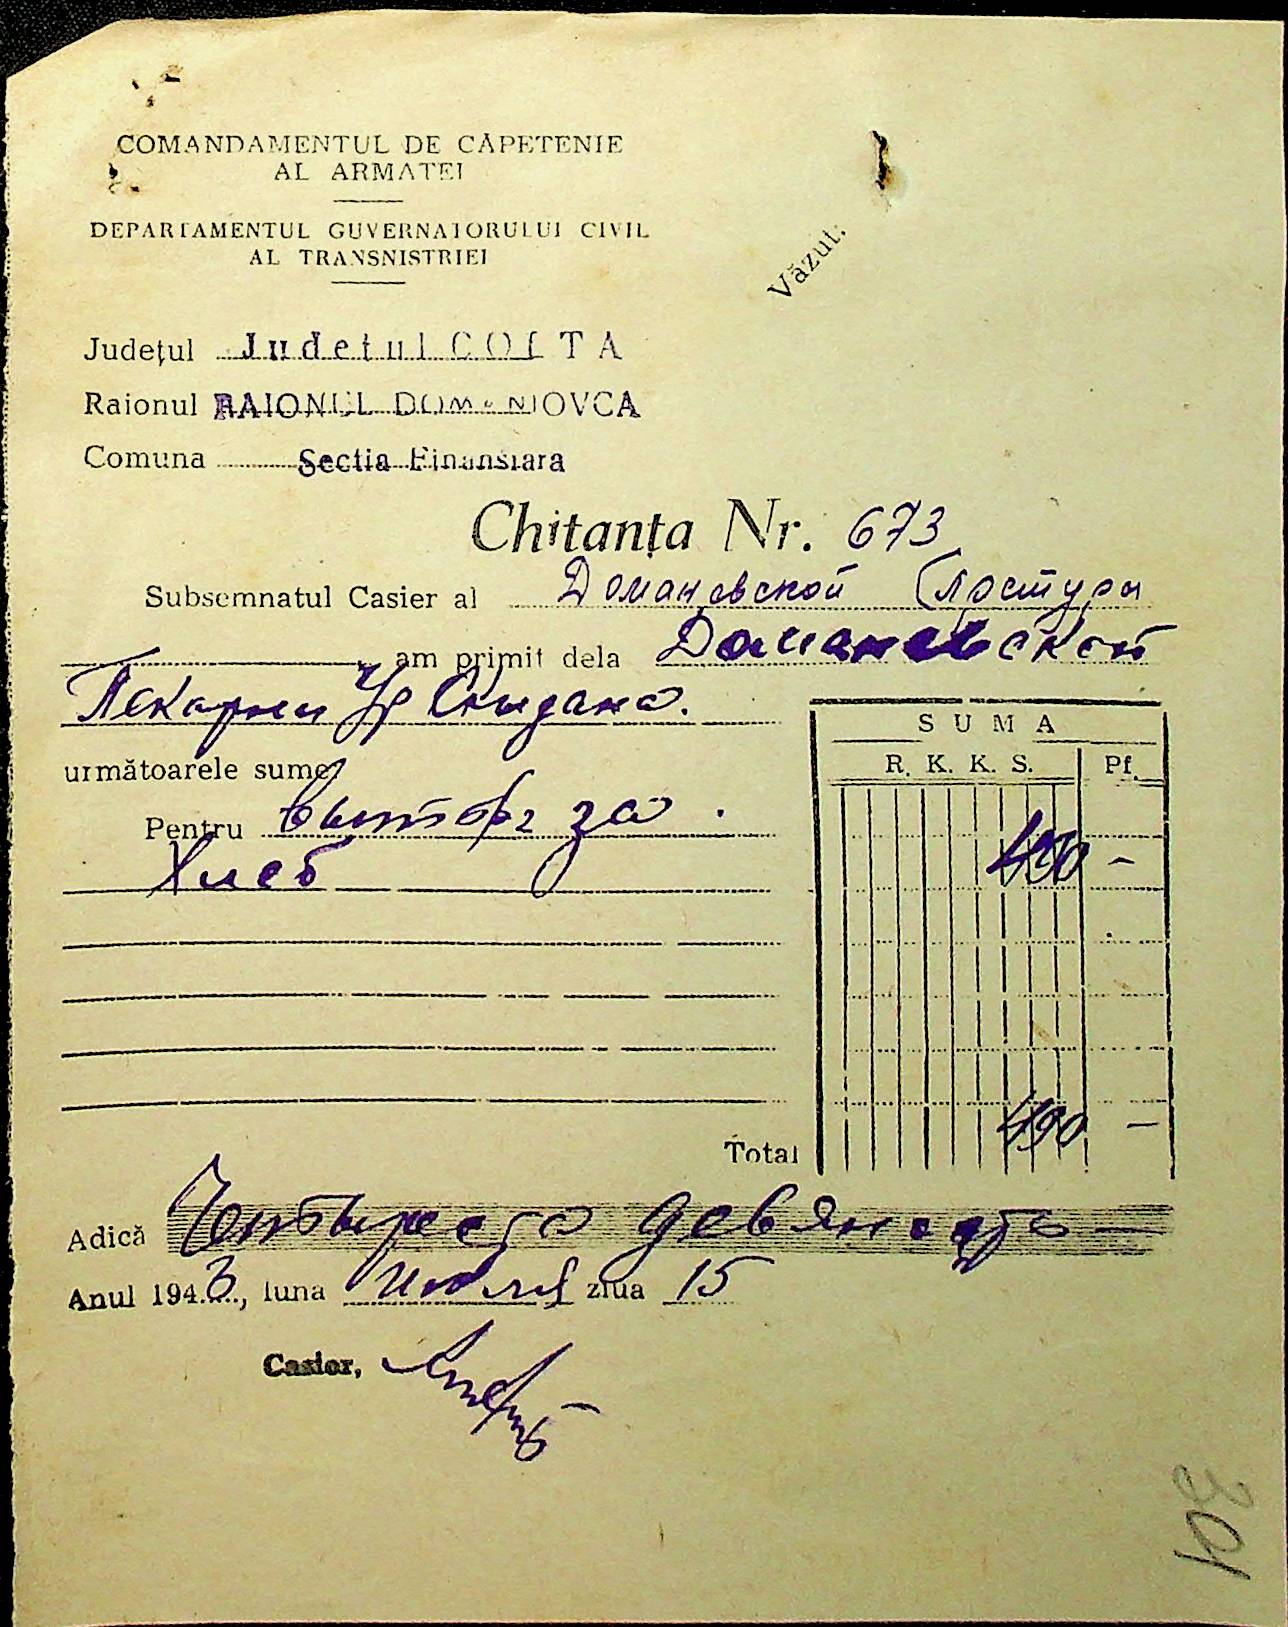 COMANDAMENTUL DE CĂPETENIE
AL ARMATEI
DEPARTAMENTUL GUVERNATORULUI CIVIL
AL TRANSNISTRIEI
Văzut:
Județul Judetul GOLTA
Raionul RAIONUL DOMANIOVCA
Comuna Sectia Finansiara
Chitanța Nr. 673
Subsemnatul Casier al Доманевской Претуры
am primit dela Доманевской
Пекарни
următoarele sume
SUMA
R. K. K. S. Pf.
Pentru за
Хлеб
490 -
Total 490 —
Adică Четыреста девяносто —
Anul 1943, luna июля ziua 15
Casier,
301